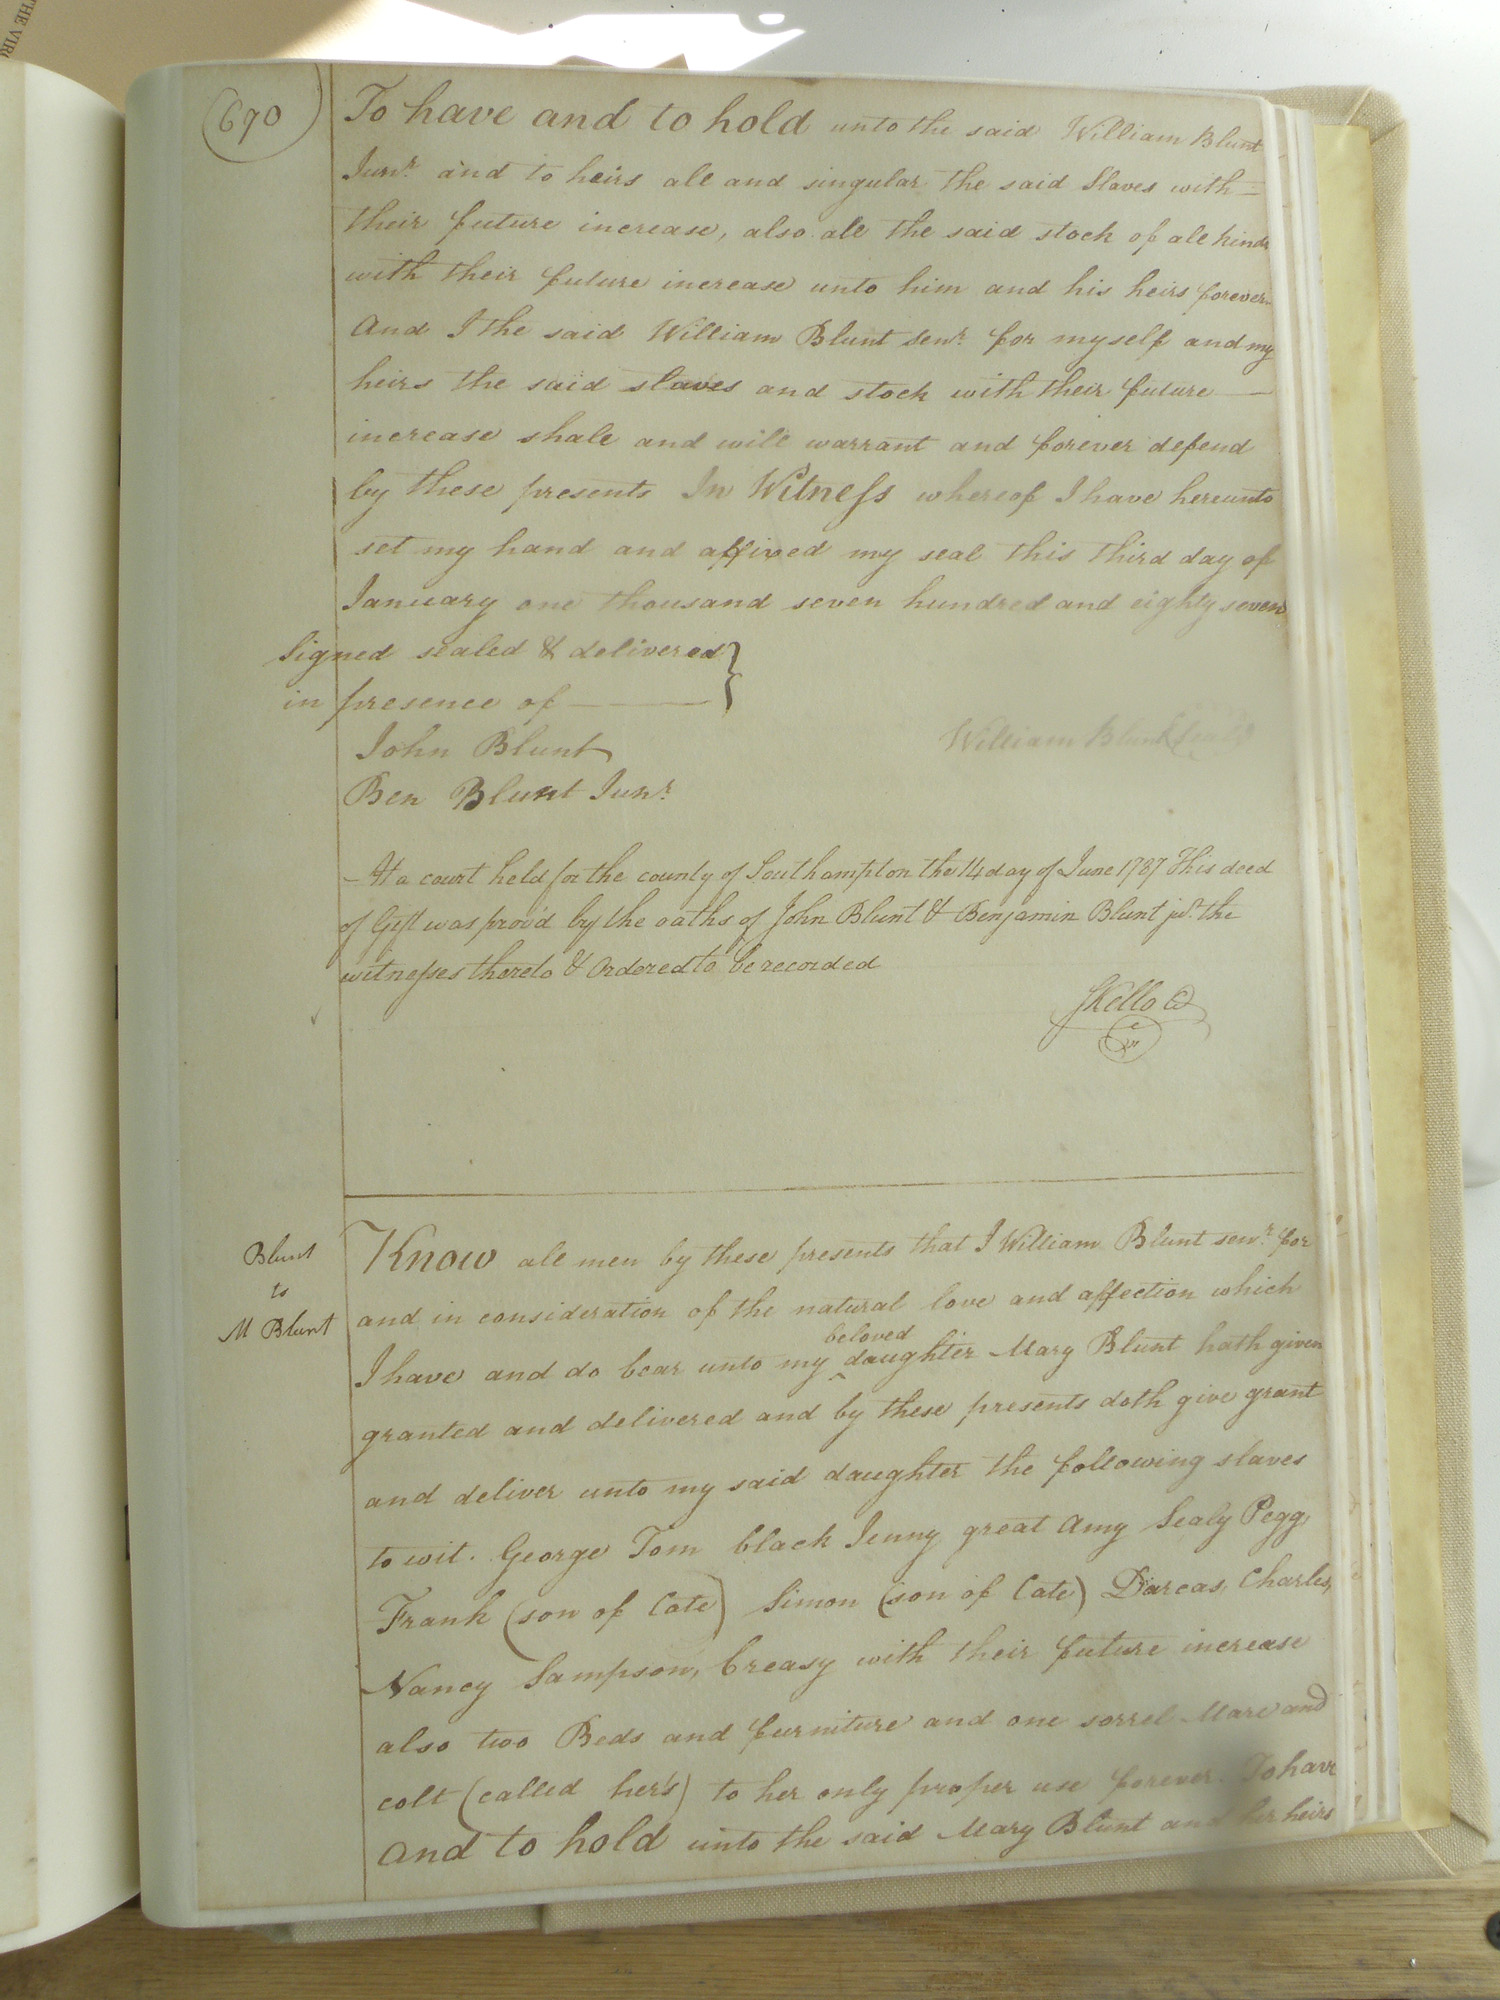 THE VIR
670
To have and to hold unto the said William Blunt
Junr. and to heirs all and singular the said Slaves with
their future increase, also all the said stock of all kinds
with their future increase unto him and his heirs forever
And I the said William Blunt senr. for myself and my
heirs the said slaves and stock with their future
increase shall and will warrant and forever defend
by these presents In Witness whereof I have hereunto
set my hand and affixed my seal this third day of
January one thousand seven hundred and eighty seven
Signed sealed & delivered
in presence of
William Blunt (seal)
John Blunt
Ben Blunt Junr.
At a court held for the county of Southampton the 14 day of June 1787 This deed
of Gift was prov'd by the oaths of John Blunt & Benjamin Blunt jur. the
witnesses thereto & Ordered to be recorded
SKello
Blunt
to
M Blunt
Know all men by these presents that I William Blunt senr. for
and in consideration of the natural love and affection which
I have and do bear unto my beloved daughter Mary Blunt hath given
granted and delivered and by these presents doth give grant
and deliver unto my said daughter the following slaves
to wit. George Tom black Jenny great Amy Sealy Pegg,
Frank (son of Cate) Simon (son of Cate) Darcas, Charles,
Nancy Sampson, Creasy with their future increase
also two Beds and furniture and one sorrel Mare and
colt (called her's) to her only proper use forever. To have
and to hold unto the said Mary Blunt and her heirs